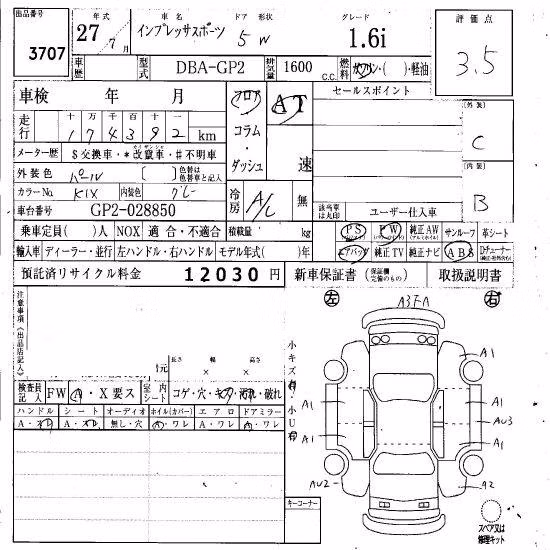 出品番号
3707
年式
27年 7月
車名
インプレッサスポーツ
ドア 形状
5 W
グレード
1.6i
評価点
3.5
車歴
型式
DBA-GP2
排気量
1600 c.c.
燃料
ガソリン・( )・軽油
車検 年 月
フロア
コラム・ダッシュ
AT
速
セールスポイント
外装
C
走行
十 万 千 百 十 一
1 7 4 3 9 2 km
メーター歴
$交換車・*改竄車・#不明車
内装
B
外装色
パール
[ ]
色替は色替車名と記入
カラーNo.
K1X
内装色
グレー
冷房
A/C
無
該当車は丸印
ユーザー仕入車
車台番号
GP2-028850
乗車定員( )人
NOX
適合・不適合
積載量
kg
PS
PW
純正AW
サンルーフ
革シート
輸入車
ディーラー・並行
左ハンドル・右ハンドル
モデル年式( )年
エアバッグ
純正TV
純正ナビ
ABS
預託済リサイクル料金
12030円
新車保証書
取扱説明書
注意事項(出品店記入)
左
A3 F-A
右
長さ 幅 高さ
検査員記入
FW
A・X要ス
室内シート
コゲ・穴・キズ・汚れ・破れ
ハンドル シート オーディオ ホイル(カバー) エアロ ドアミラー
A・スレ
A・スレ
無し・穴
A・ワレ
A・ワレ
A・ワレ
小キズ有・小U有
A1
A1
A1
AU3
A1
A1
AU2
A2
キーコーナー
スペア又は修理キット